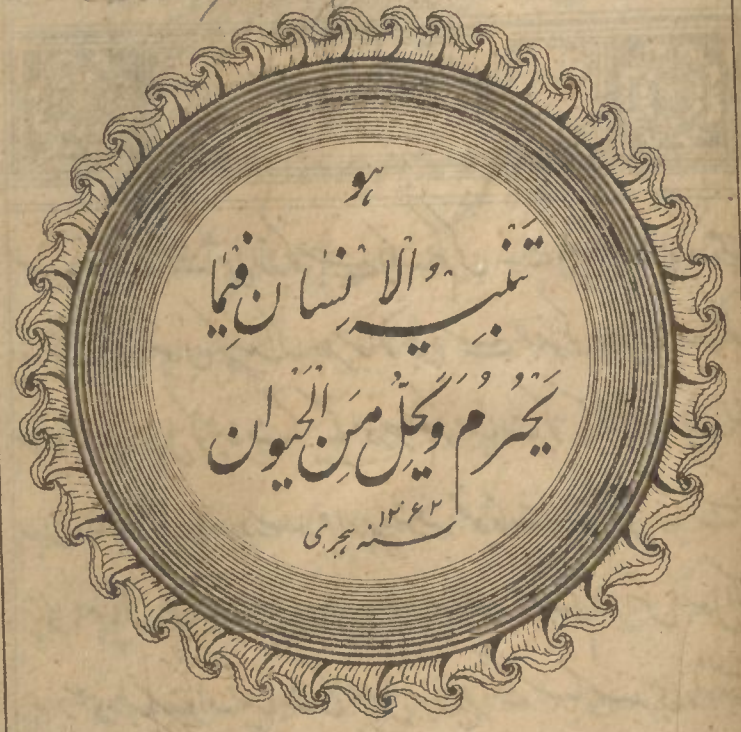 هو
تَنْبِيهُ الْاِنْسَان فِيْمَا
يَحْرُمُ وَيَحِلُّ مِنَ الْحَيْوَان
سنه ۱۲۶۲ هجری